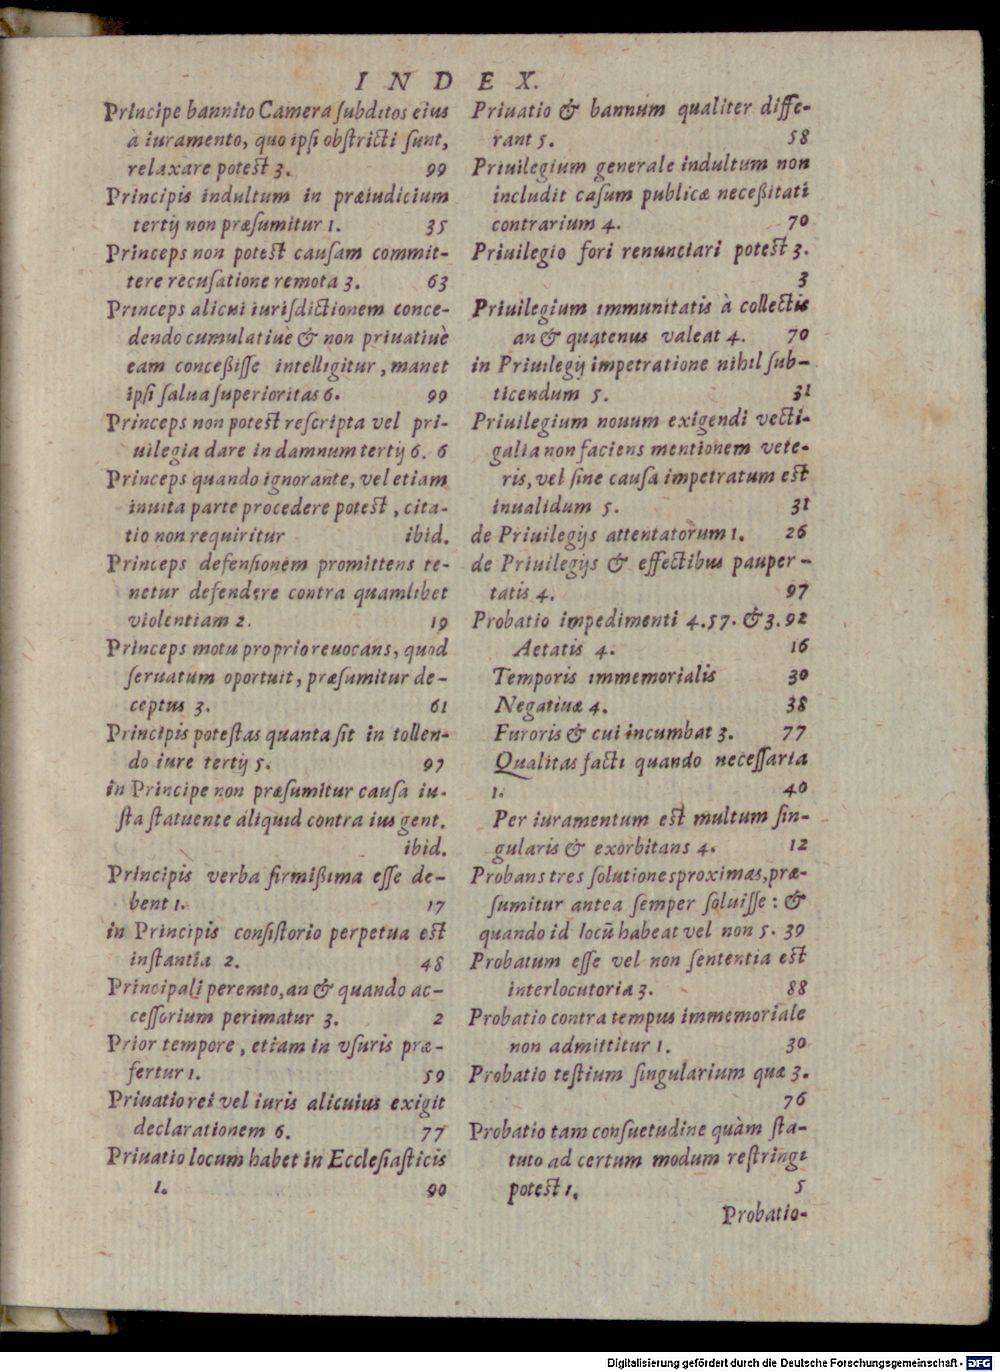 INDEX.
Principe bannito Camera ſubditos eius
à iuramento, quo ipſi obſtricti ſunt,
relaxare poteſt 3. 99
Principis indultum in præiudicium
tertij non præſumitur 1. 35
Princeps non poteſt cauſam commit-
tere recuſatione remota 3. 63
Princeps alicui iuriſdictionem conce-
dendo cumulatiuè & non priuatiuè
eam conceßiſſe intelligitur, manet
ipſi ſalua ſuperioritas 6. 99
Princeps non poteſt reſcripta vel pri-
uilegia dare in damnum tertij 6. 6
Princeps quando ignorante, vel etiam
inuita parte procedere poteſt, cita-
tio non requiritur ibid.
Princeps defenſionem promittens te-
netur defendere contra quamlibet
violentiam 2. 19
Princeps motu proprio reuocans, quod
ſeruatum oportuit, præſumitur de-
ceptus 3. 61
Principis poteſtas quanta ſit in tollen-
do iure tertij 5. 97
in Principe non præſumitur cauſa iu-
ſta ſtatuente aliquid contra ius gent.
ibid.
Principis verba firmißima eſſe de-
bent 1. 17
in Principis conſiſtorio perpetua eſt
inſtantia 2. 48
Principali peremto, an & quando ac-
ceſſorium perimatur 3. 2
Prior tempore, etiam in vſuris præ-
fertur 1. 59
Priuatio rei vel iuris alicuius exigit
declarationem 6. 77
Priuatio locum habet in Eccleſiaſticis
1. 90
Priuatio & bannum qualiter diffe-
rant 5. 58
Priuilegium generale indultum non
includit caſum publicæ neceßitati
contrarium 4. 70
Priuilegio fori renunciari poteſt 3.
3
Priuilegium immunitatis à collectis
an & quatenus valeat 4. 70
in Priuilegij impetratione nihil ſub-
ticendum 5. 31
Priuilegium nouum exigendi vecti-
galia non faciens mentionem vete-
ris, vel ſine cauſa impetratum eſt
inualidum 5. 31
de Priuilegijs attentatorum 1. 26
de Priuilegijs & effectibus pauper-
tatis 4. 97
Probatio impedimenti 4. 57. & 3. 92
Aetatis 4. 16
Temporis immemorialis 30
Negatiuæ 4. 38
Furoris & cui incumbat 3. 77
Qualitas facti quando neceſſaria
1. 40
Per iuramentum eſt multum ſin-
gularis & exorbitans 4. 12
Probans tres ſolutiones proximas, præ-
ſumitur antea ſemper ſoluiſſe: &
quando id locū habeat vel non 5. 39
Probatum eſſe vel non ſententia eſt
interlocutoria 3. 88
Probatio contra tempus immemoriale
non admittitur 1. 30
Probatio teſtium ſingularium quæ 3.
76
Probatio tam conſuetudine quàm ſta-
tuto ad certum modum reſtringi
poteſt 1. 5
Probatio-
Digitalisierung gefördert durch die Deutsche Forschungsgemeinschaft - DFG